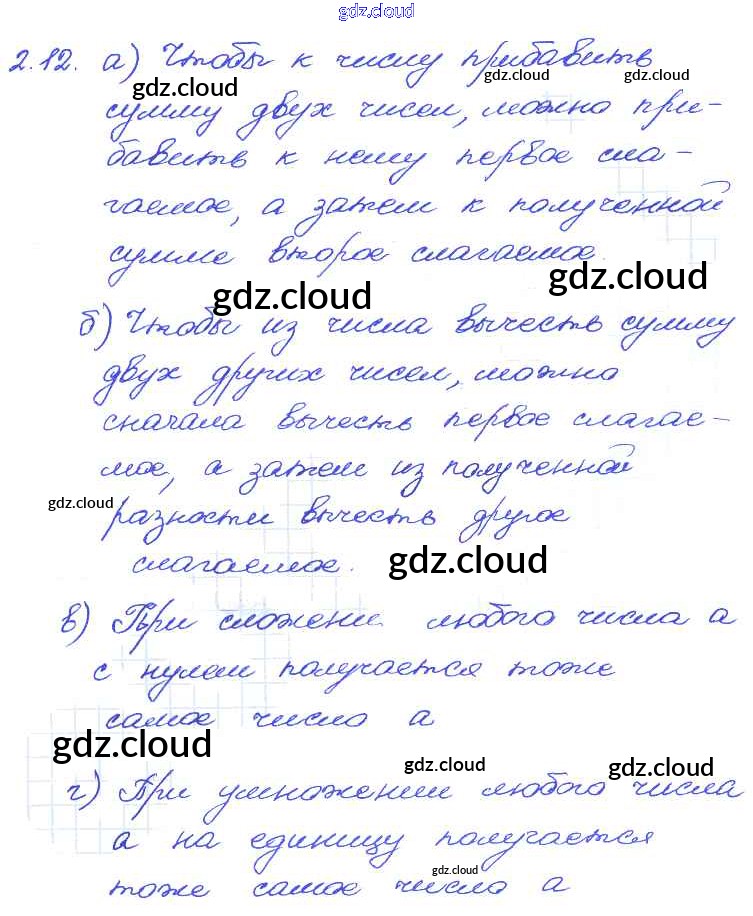 gdz.cloud
2.12. а) Чтобы к числу прибавить
gdz.cloud gdz.cloud gdz.cloud
сумму двух чисел, можно при-
бавить к нему первое сла-
gdz.cloud
гаемое, а затем к полученной
сумме второе слагаемое.
gdz.cloud gdz.cloud
б) Чтобы из числа вычесть сумму
двух других чисел, можно
сначала вычесть первое слагае-
мое, а затем из полученной
gdz.cloud
разности вычесть другое
слагаемое.
gdz.cloud
в) При сложени любого числа а
с нулем получается тоже
самое число а
gdz.cloud gdz.cloud gdz.cloud
г) При умножении любого числа
а на единицу получается
gdz.cloud
тоже самое число а